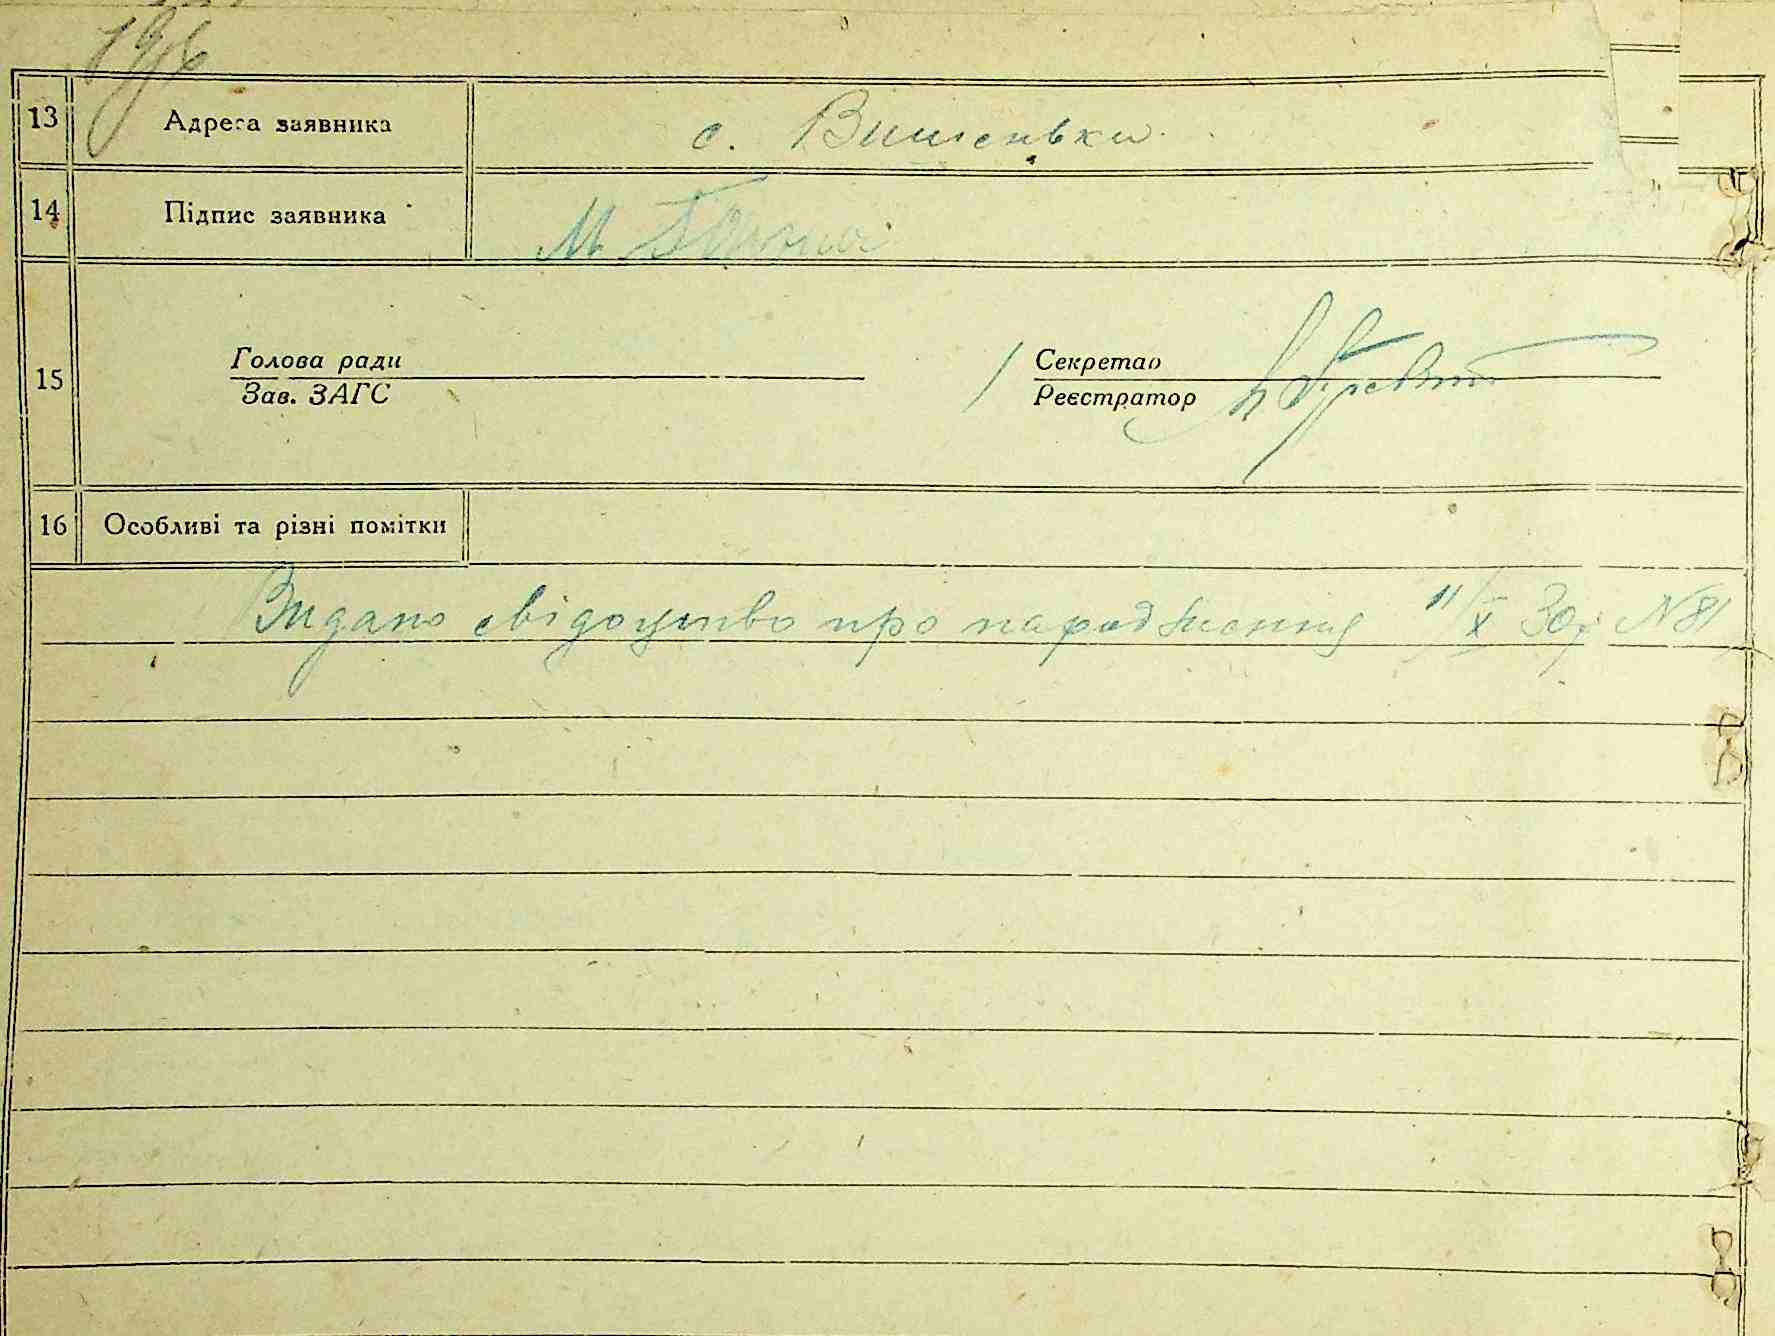 196
13 Адреса заявника с. Вишеньки
14 Підпис заявника М
15 Голова ради Секретар
Зав. ЗАГС Реєстратор
16 Особливі та різні помітки
Видано свідоцтво про народження 11/X 30р N81